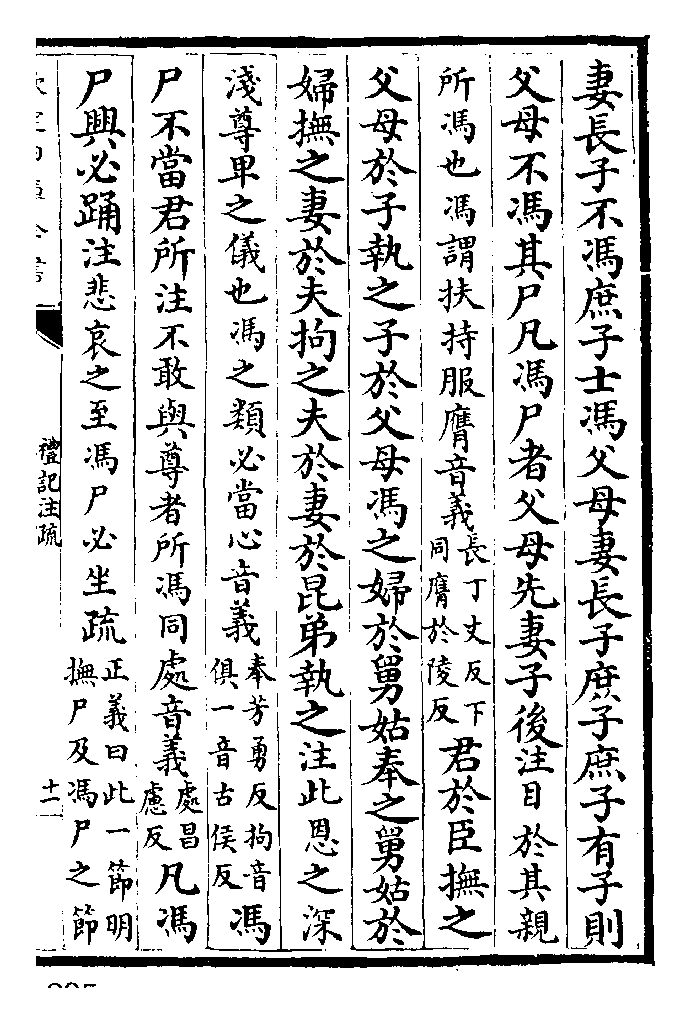 妻長子不馮庶子士馮父母妻長子庶子庶子有子則
父母不馮其尸凡馮尸者父母先妻子後注目於其親
所馮也馮謂扶持服膺音義長丁丈反下同膺於陵反君於臣撫之
父母於子執之子於父母馮之婦於舅姑奉之舅姑於
婦撫之妻於夫拘之夫於妻於昆弟執之注此恩之深
淺尊卑之儀也馮之類必當心音義奉芳勇反拘音俱一音古侯反馮
尸不當君所注不敢與尊者所馮同處音義處昌慮反凡馮
尸興必踊注悲哀之至馮尸必坐疏正義曰此一節明撫尸及馮尸之節
禮記注疏
十一